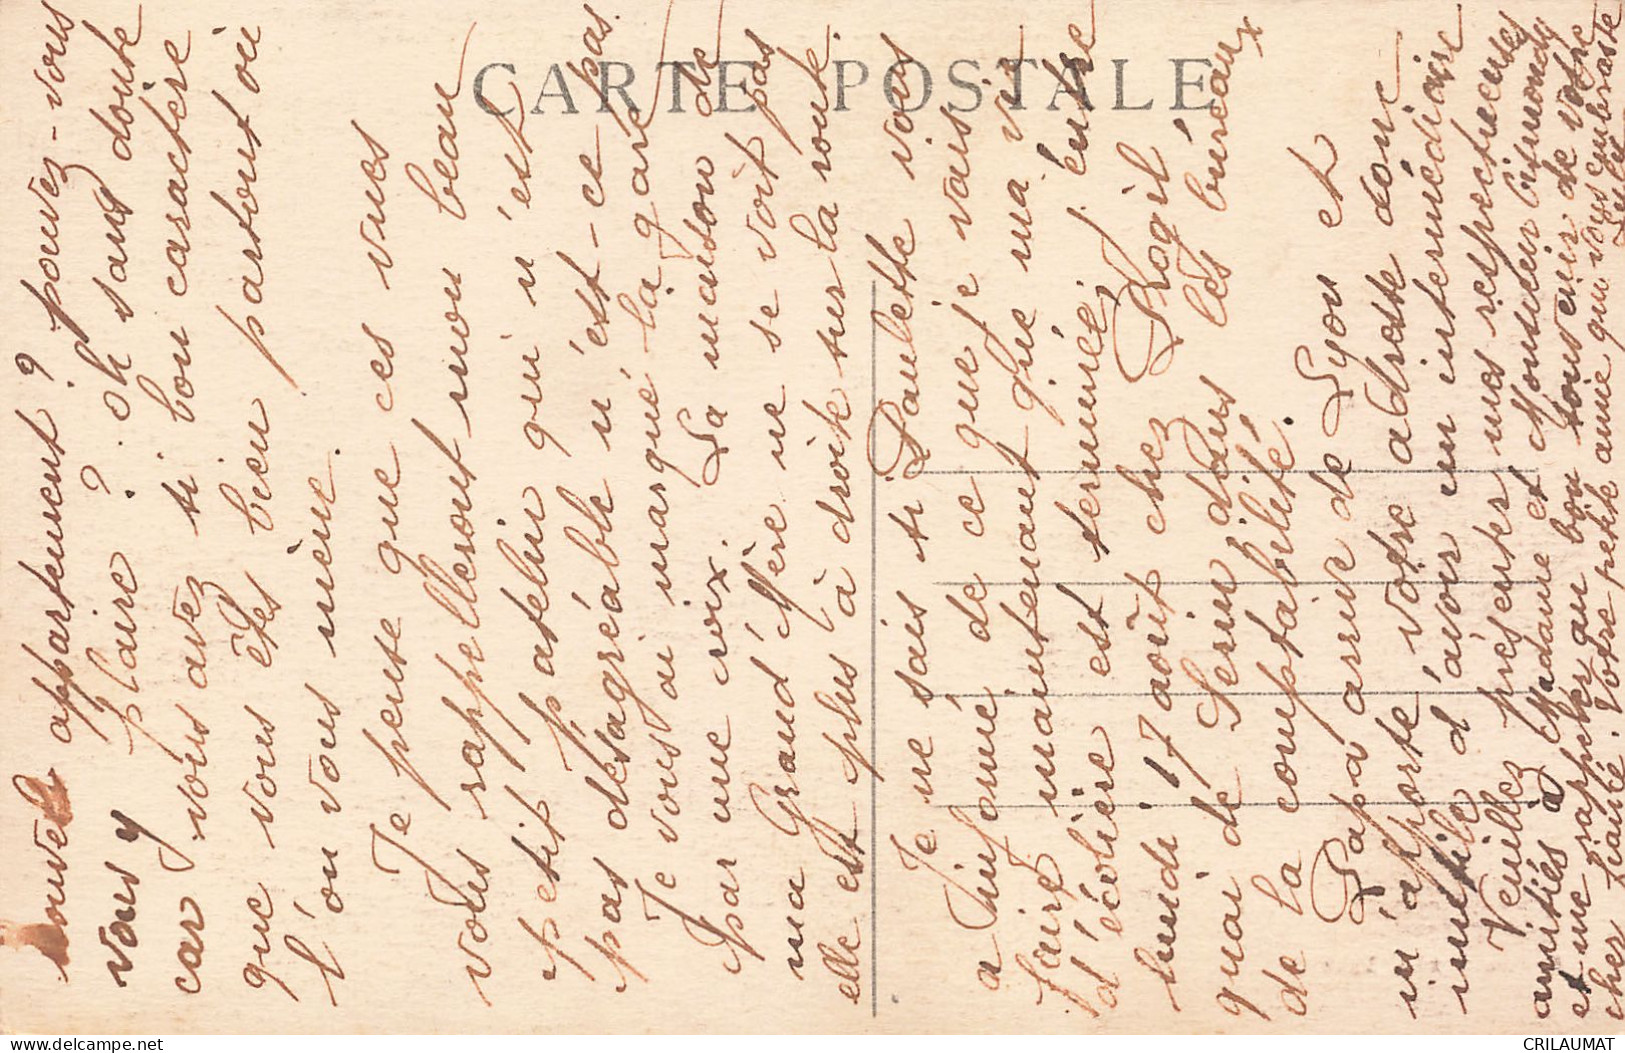 CARTE POSTALE
nouvel appartement ? pouvez-vous
vous y plaire ? oh sans doute
car vous avez si bon caractère
que vous êtes bien partout où
l'on vous mène.
Je pense que ces vues
vous rappelleront mon beau
petit patelin qui n'est
pas désagréable n'est-ce pas.
Je vous ai marqué la gare
par une croix. La maison de
ma Grand'Mère ne se voit pas
elle est plus à droite sur la route.
Je ne sais si Paulette vous
a informé de ce que je vais
faire maintenant que ma vie
d'écolière est terminée, j'entre
lundi 17 août chez Rogil
quai de Serin dans les bureaux
de la comptabilité.
Papa arrive de Lyon et
m'apporte votre adresse donc
inutile d'avoir un intermédiaire
Veuillez présenter mes respectueuses
amitiés à Madame et Monsieur
et me rappeler au bon souvenir de votre
cher fiancé. Votre petite amie qui vous embrasse
CRILAUMAT
www.delcampe.net